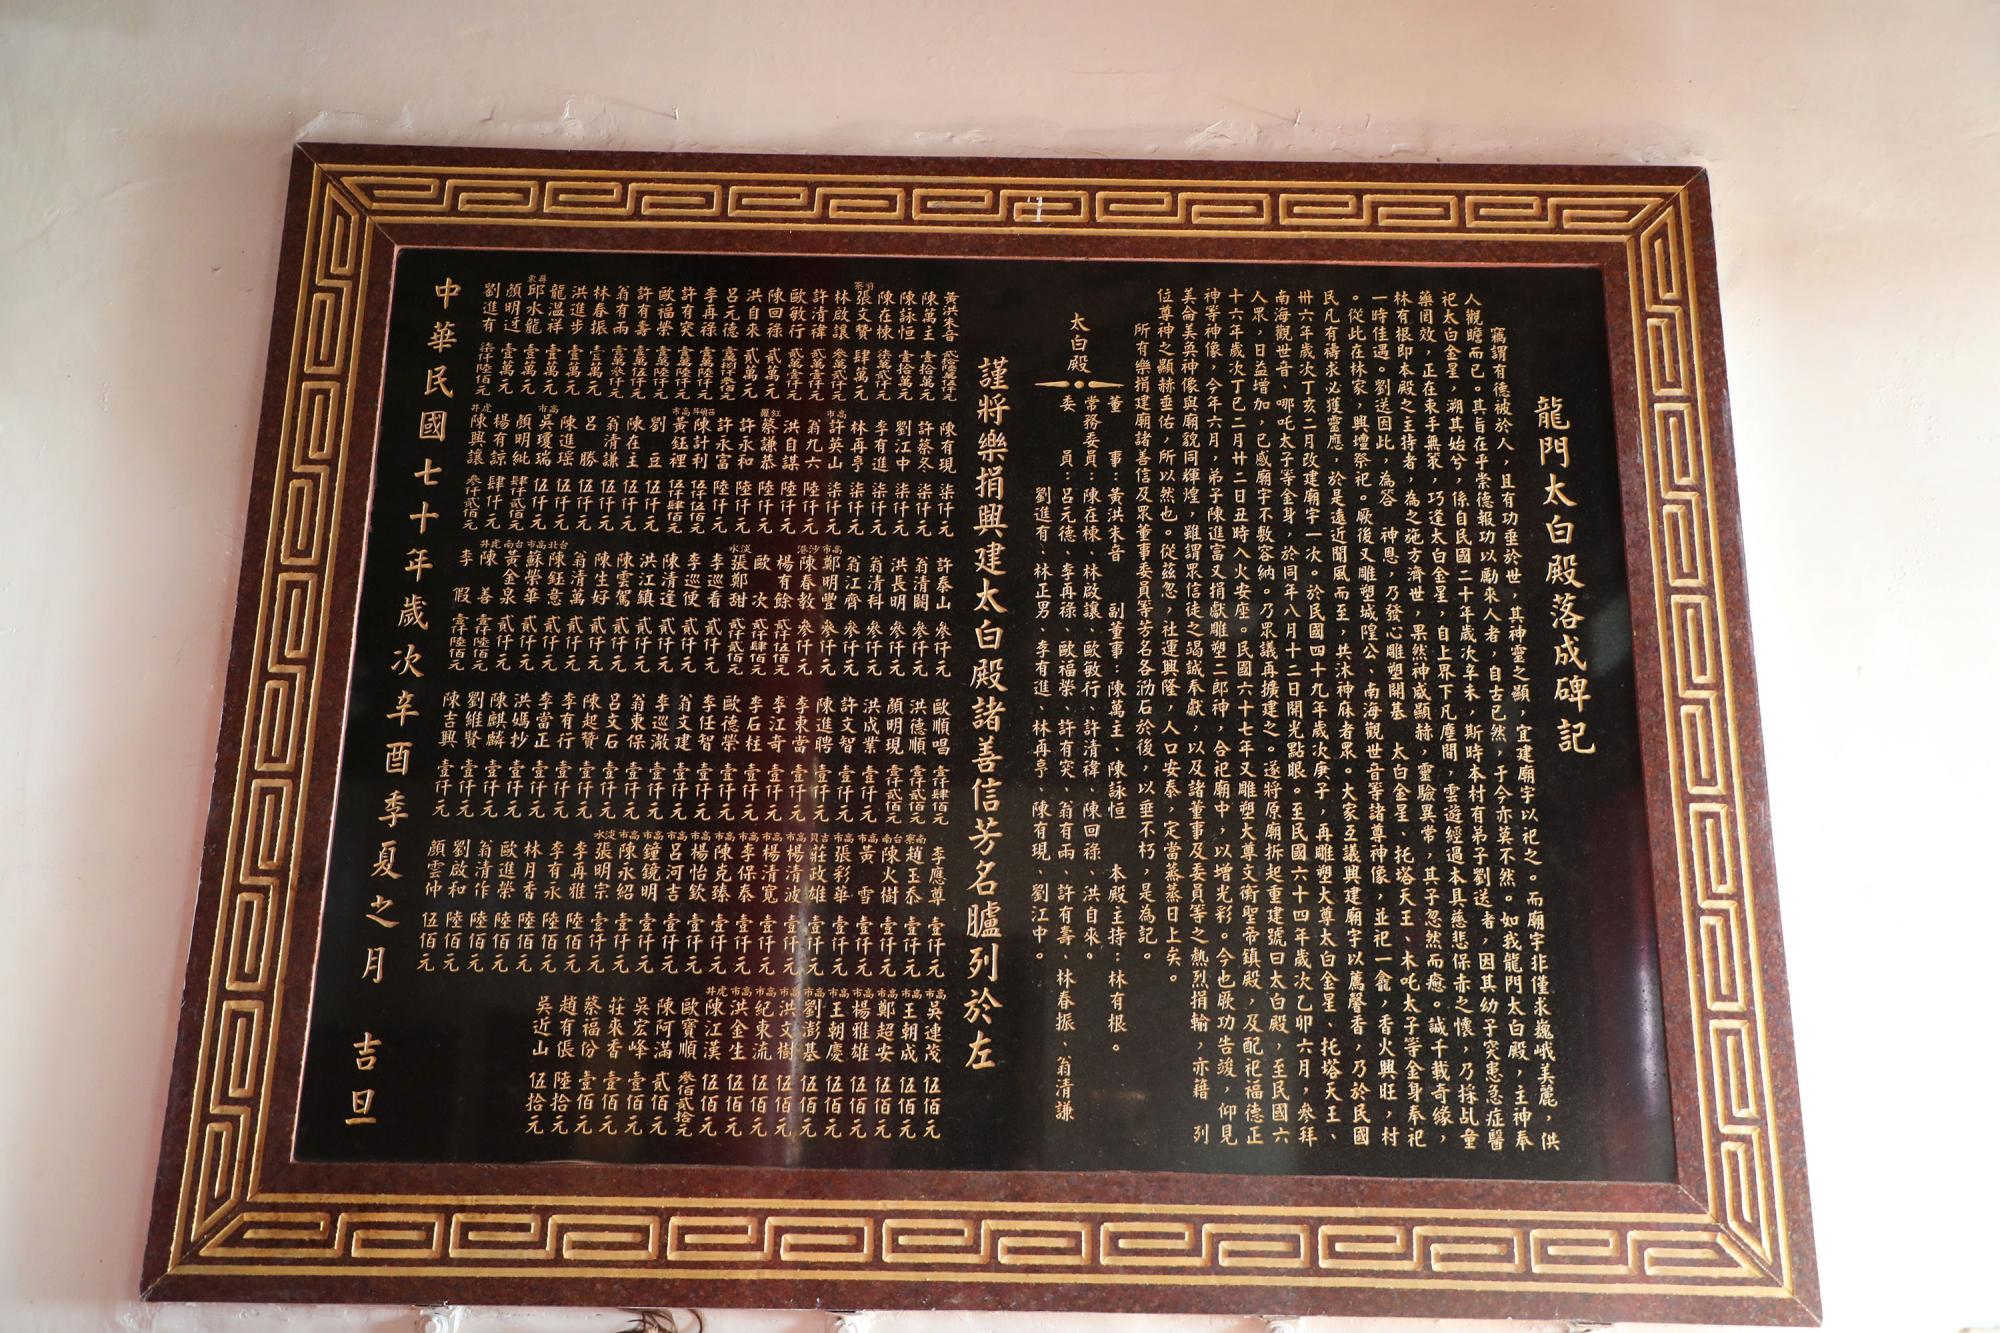 龍門太白殿落成碑記
竊謂有德被於人，且有功垂於世，其神靈之顯，宜建廟宇以祀之。而廟宇非僅求巍峨美麗，供
人觀瞻而已。其旨在乎崇德報功以勵來人者，自古已然，于今亦莫不然。如我龍門太白殿，主神奉
祀太白金星，溯其始兮，係自民國二十年歲次辛未，斯時本村有弟子劉送者，因其幼子突患急症醫
藥罔效，正在束手無策，巧逢太白金星，自上界下凡塵間，雲遊經過本具慈悲保赤之懷，乃採乩童
林有根即本殿之主持者，為之施方濟世，果然神威顯赫，靈驗異常，其子忽然而癒。誠千載奇緣，
一時佳遇。劉送因此，為答　神恩，乃發心雕塑開基　太白金星、托塔天王、木吒太子等金身奉祀
。從此在林家，興壇祭祀。厥後又雕塑城隍公、南海觀世音等諸尊神像，並祀一龕，香火興旺，村
民凡有禱求必獲靈應，於是遠近聞風而至，共沐神庥者眾。大家互議興建廟宇以薦馨香，乃於民國
卅六年歲次丁亥二月改建廟宇一次。於民國四十九年歲次庚子，再雕塑大尊太白金星、托塔天王、
南海觀世音、哪吒太子等金身，於同年八月十二日開光點眼。至民國六十四年歲次乙卯六月，參拜
人眾，日益增加，已感廟宇不敷容納。乃眾議再擴建之。遂將原廟拆起重建號曰太白殿，至民國六
十六年歲次丁巳二月廿二日丑時入火安座。民國六十七年又雕塑大尊文衡聖帝鎮殿，及配祀福德正
神等神像，今年六月，弟子陳進富又捐獻雕塑二郎神，合祀廟中，以增光彩。今也厥功告竣，仰見
美侖美奐神像與廟貌同輝煌，雖謂眾信徒之竭誠奉獻，以及諸董事及委員等之熱烈捐輸，亦藉　列
位尊神之顯赫垂佑，所以然也。從茲忽，社運興隆，人口安泰，定當蒸蒸日上矣。
所有樂捐建廟諸善信及眾董事委員等芳名各泐石於後，以垂不朽，是為記。
太白殿
董　　事：黃洪朱音　副董事：陳萬王、陳詠恒　本殿主持：林有根。
常務委員：陳在棟、林啟讓、歐敏行、許清禕、陳回祿、洪自來。
委　　員：呂元德、李再祿、歐福榮、許有突、翁有兩、許有壽、林春振、翁清謙
劉進有、林正男、李有進、林再亭、陳有現、劉江中。
謹將樂捐興建太白殿諸善信芳名臚列於左
黃洪朱音
陳萬主 壹拾萬元
陳詠恒 壹拾萬元
陳在棟 柒萬貳仟元
張文贊 肆萬元
林啟讓 參萬貳仟元
許清禕 貳萬壹仟元
歐敏行 貳萬壹仟元
陳回祿 貳萬元
洪自來 貳萬元
呂元德
李再祿
歐福榮
許有突
許有壽 壹萬伍仟元
翁有兩 壹萬參仟元
林春振 壹萬元
洪進步 壹萬元
龍溫祥 壹萬元
邱水龍 壹萬元
顏明迓 壹萬元
劉進有 柒仟陸佰元
陳有現 柒仟元
許蔡冬 柒仟元
劉江中 柒仟元
李有進 柒仟元
林再亭 柒仟元
高市 許英山 柒仟元
翁九六 陸仟元
洪自謀 陸仟元
紅羅 蔡謙恭 陸仟元
許永和 陸仟元
許永富 陸仟元
陳計利 伍仟伍佰元
高市 黃鈺裡 伍仟肆佰元
劉　豆 伍仟元
陳在主 伍仟元
翁清謙 伍仟元
呂　勝 伍仟元
陳進瑶 伍仟元
高市 吳瓊瑞 伍仟元
顏明紕 肆仟貳佰元
楊有諒 肆仟元
虎井 陳興讓 參仟貳佰元
許泰山 參仟元
翁清闊 參仟元
洪長明 參仟元
翁清科 參仟元
翁江齊 參仟元
高市 鄭明豐 參仟元
沙港 陳春教 參仟元
楊有餘 貳仟伍佰元
歐　次 貳仟肆佰元
淡水 張鄭甜 貳仟貳佰元
李巡看 貳仟元
李巡便 貳仟元
陳清逢 貳仟元
洪江鎮 貳仟元
陳雲駕 貳仟元
陳生好 貳仟元
翁清萬 貳仟元
台北 陳鈺意 貳仟元
高市 蘇榮華 貳仟元
台南 黃金泉 貳仟元
虎井 陳　善 壹仟陸佰元
李　假 壹仟陸佰元
歐順唱 壹仟肆佰元
洪德順 壹仟貳佰元
顏明現 壹仟貳佰元
洪成業 壹仟元
許文智 壹仟元
陳進聘 壹仟元
李東當 壹仟元
李江奇 壹仟元
李石柱 壹仟元
歐德榮 壹仟元
李任智 壹仟元
翁文建 壹仟元
李巡澉 壹仟元
翁東保 壹仟元
呂文石 壹仟元
陳起贊 壹仟元
李有行 壹仟元
李當正 壹仟元
洪媽抄 壹仟元
陳麒麟 壹仟元
劉維賢 壹仟元
陳吉興 壹仟元
李應尊 壹仟元
南寮 趙王泰 壹仟元
台南 陳火樹 壹仟元
高市 黃　雪 壹仟元
高市 張彩華 壹仟元
吉貝 莊政雄 壹仟元
高市 楊清波 壹仟元
高市 楊清寬 壹仟元
高市 李保泰 壹仟元
高市 陳克臻 壹仟元
高市 楊怡欽 壹仟元
高市 呂河吉 壹仟元
高市 鐘鏡明 壹仟元
高市 陳永紹 壹仟元
淡水 張明宗 壹仟元
李再雅 陸佰元
李有永 陸佰元
林月香 陸佰元
歐進榮 陸佰元
翁清作 陸佰元
劉啟和 陸佰元
顏雲仲 伍佰元
高市 吳連茂 伍佰元
高市 王朝成 伍佰元
高市 鄭超安 伍佰元
高市 楊雅雄 伍佰元
高市 王朝慶 伍佰元
高市 劉澎基 伍佰元
高市 洪文樹 伍佰元
高市 紀東流 伍佰元
高市 洪金生 伍佰元
虎井 陳江漢 伍佰元
歐寶順 參佰貳拾元
陳阿滿 貳佰元
吳宏峰 壹佰元
莊來香 壹佰元
蔡福份 壹佰元
趙有長 陸拾元
吳近山 伍拾元
中華民國七十年歲次辛酉季夏之月　吉旦